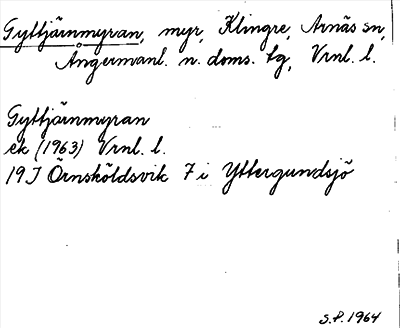 Gyttjärnmyran, myr, Klingre, Arnäs sn,
Ångermanl. n. doms. tg, Vrnl. l.
Gyttjärnmyran
ek (1963) Vrnl. l.
19J Örnsköldsvik 7 i Yttergundsjö
S.P. 1964